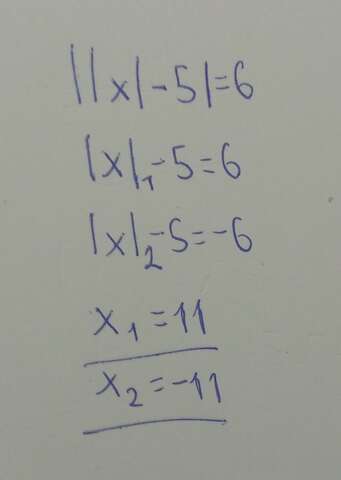 ||x|-5|=6
|x|₁-5=6
|x|₂-5=-6
x₁=11
x₂=-11